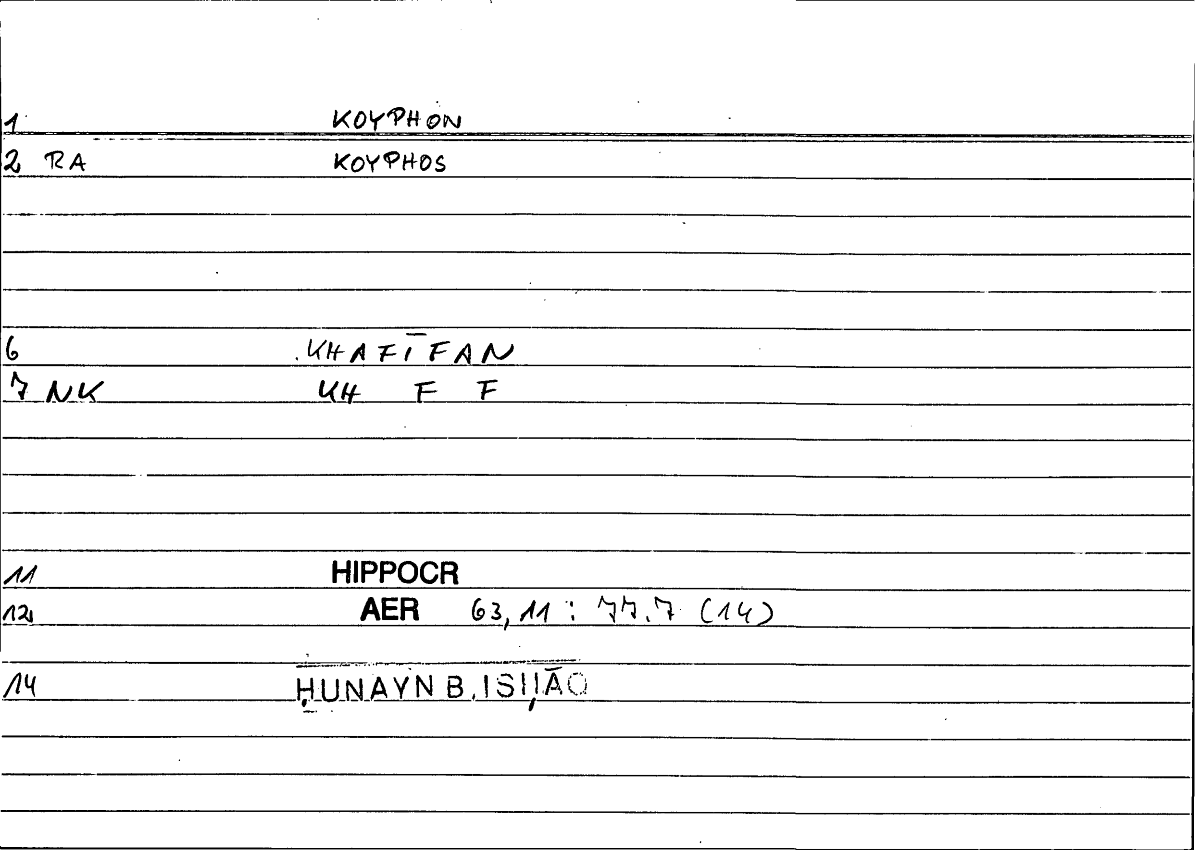 1 KOYPHON
2 RA KOYPHOS
6 KHAFĪFAN
7 NK KH F F
11 HIPPOCR
12 AER 63,11 : 77.7 (14)
14 ḤUNAYN B. ISḤĀQ